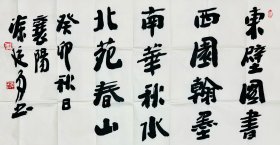 東壁圖書
西園翰墨
南華秋水
北苑春山
癸卯秋日
襄陽